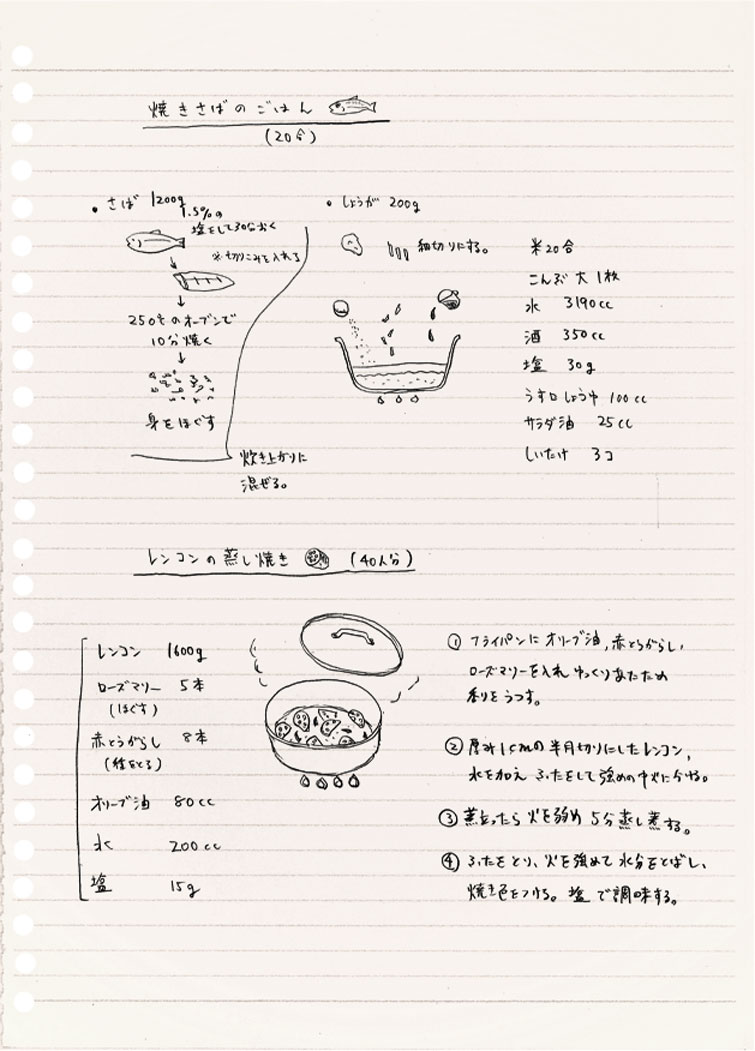 焼きさばのごはん
(20合)
・さば 1200g
1.5%の
塩をして30分おく
※切りこみを入れる
250℃のオーブンで
10分焼く
身をほぐす
炊き上がりに
混ぜる。
・しょうが 200g
細切りにする。
米20合
こんぶ 大 1枚
水 3190cc
酒 350cc
塩 30g
うす口しょうゆ 100cc
サラダ油 25cc
しいたけ 3コ
レンコンの蒸し焼き (40人分)
レンコン 1600g
ローズマリー 5本
(ほぐす)
赤とうがらし 8本
(種をとる)
オリーブ油 80cc
水 200cc
塩 15g
① フライパンに オリーブ油, 赤とうがらし,
ローズマリーを入れ ゆっくりあたため
香りをうつす。
② 厚み1cmの半月切りにしたレンコン,
水を加え ふたをして 強めの中火にかける。
③ 蒸立ったら 火を弱め 5分 蒸し煮する。
④ ふたをとり、火を強めて 水分をとばし、
焼き色をつける。塩で調味する。